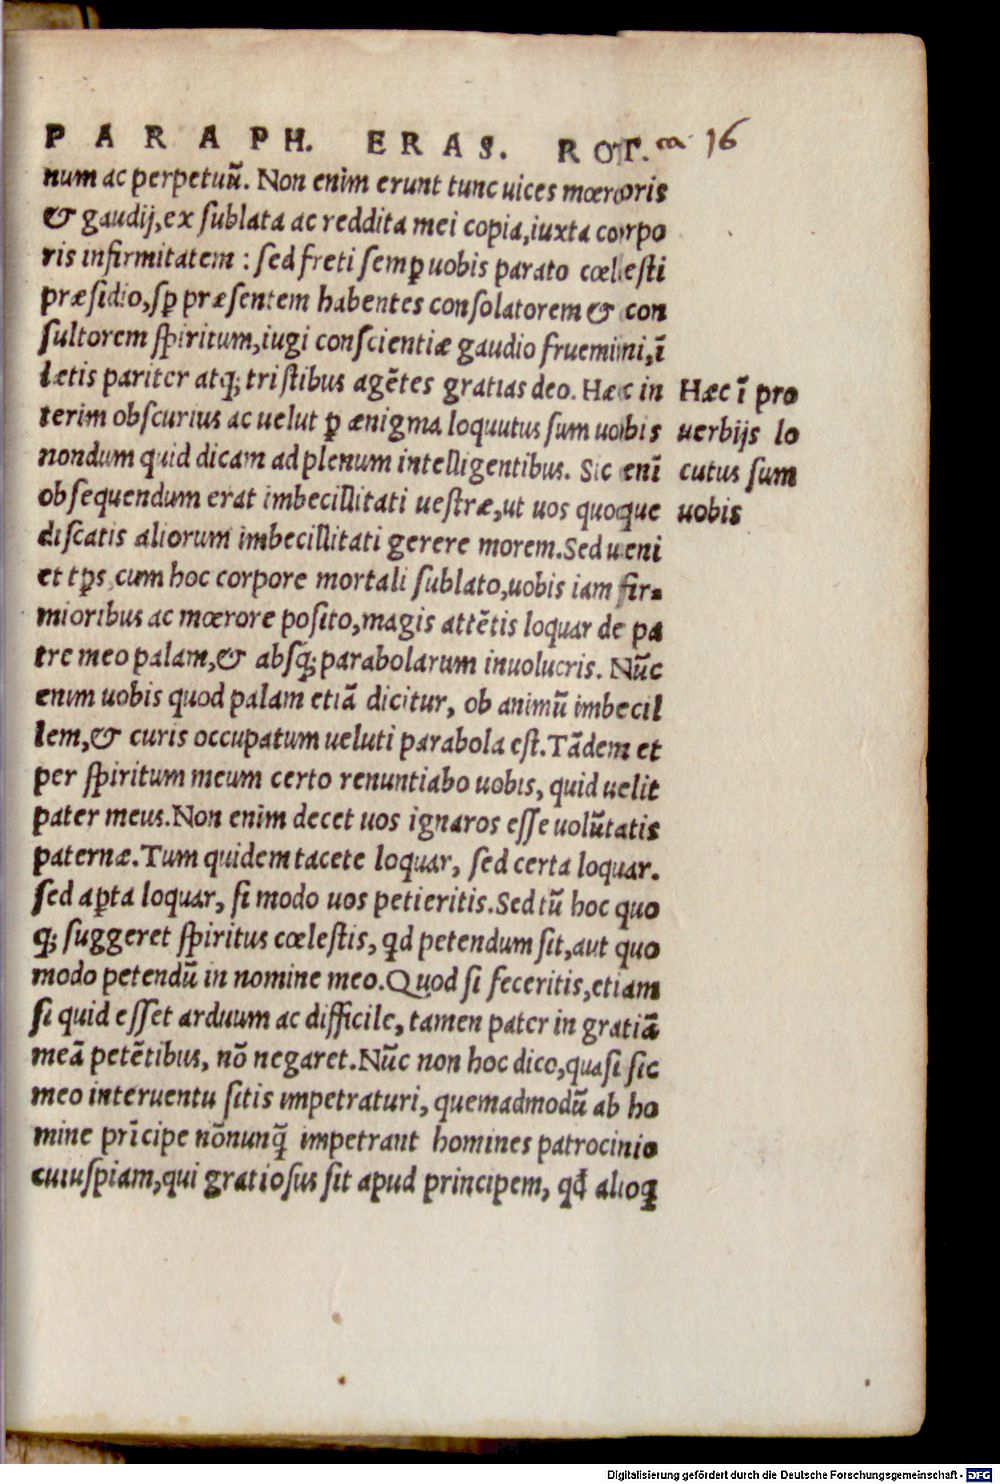 PARAPH. ERAS. ROT. ca 16
num ac perpetuū. Non enim erunt tunc uices mœroris
& gaudij, ex sublata ac reddita mei copia, iuxta corpo
ris infirmitatem : sed freti semꝑ uobis parato cœlesti
præsidio, sꝑ præsentem habentes consolatorem & con
sultorem spiritum, iugi conscientiæ gaudio fruemini, ī
lætis pariter atq; tristibus agētes gratias deo. Hæc in
terim obscurius ac uelut ꝑ ænigma loquutus sum uobis
nondum quid dicam ad plenum intelligentibus. Sic enī
obsequendum erat imbecillitati uestræ, ut uos quoque
discatis aliorum imbecillitati gerere morem. Sed ueni
et tꝑs, cum hoc corpore mortali sublato, uobis iam fir-
mioribus ac mœrore posito, magis attētis loquar de pa
tre meo palam, & absq; parabolarum inuolucris. Nūc
enim uobis quod palam etiā dicitur, ob animū imbecil
lem, & curis occupatum ueluti parabola est. Tādem et
per spiritum meum certo renuntiabo uobis, quid uelit
pater meus. Non enim decet uos ignaros esse uolūtatis
paternæ. Tum quidem tacete loquar, sed certa loquar.
sed aꝑta loquar, si modo uos petieritis. Sed tū hoc quo
q; suggeret spiritus cœlestis, qd petendum sit, aut quo
modo petendū in nomine meo. Quod si feceritis, etiam
si quid esset arduum ac difficile, tamen pater in gratiā
meā petētibus, nō negaret. Nūc non hoc dico, quasi sic
meo interuentu sitis impetraturi, quemadmodū ab ho
mine prīcipe nōnunq̄ impetrant homines patrocinio
cuiuspiam, qui gratiosus sit apud principem, qđ alioq̄
Hæc ī pro
uerbijs lo
cutus sum
uobis
Digitalisierung gefördert durch die Deutsche Forschungsgemeinschaft - DFG